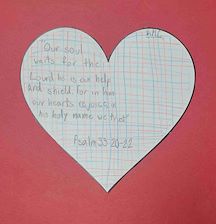 Our soul
waits for the
Lourd he is our help
and shield. for in him
our hearts rejoices in
his holy name we trust
Psalm 33-20-22